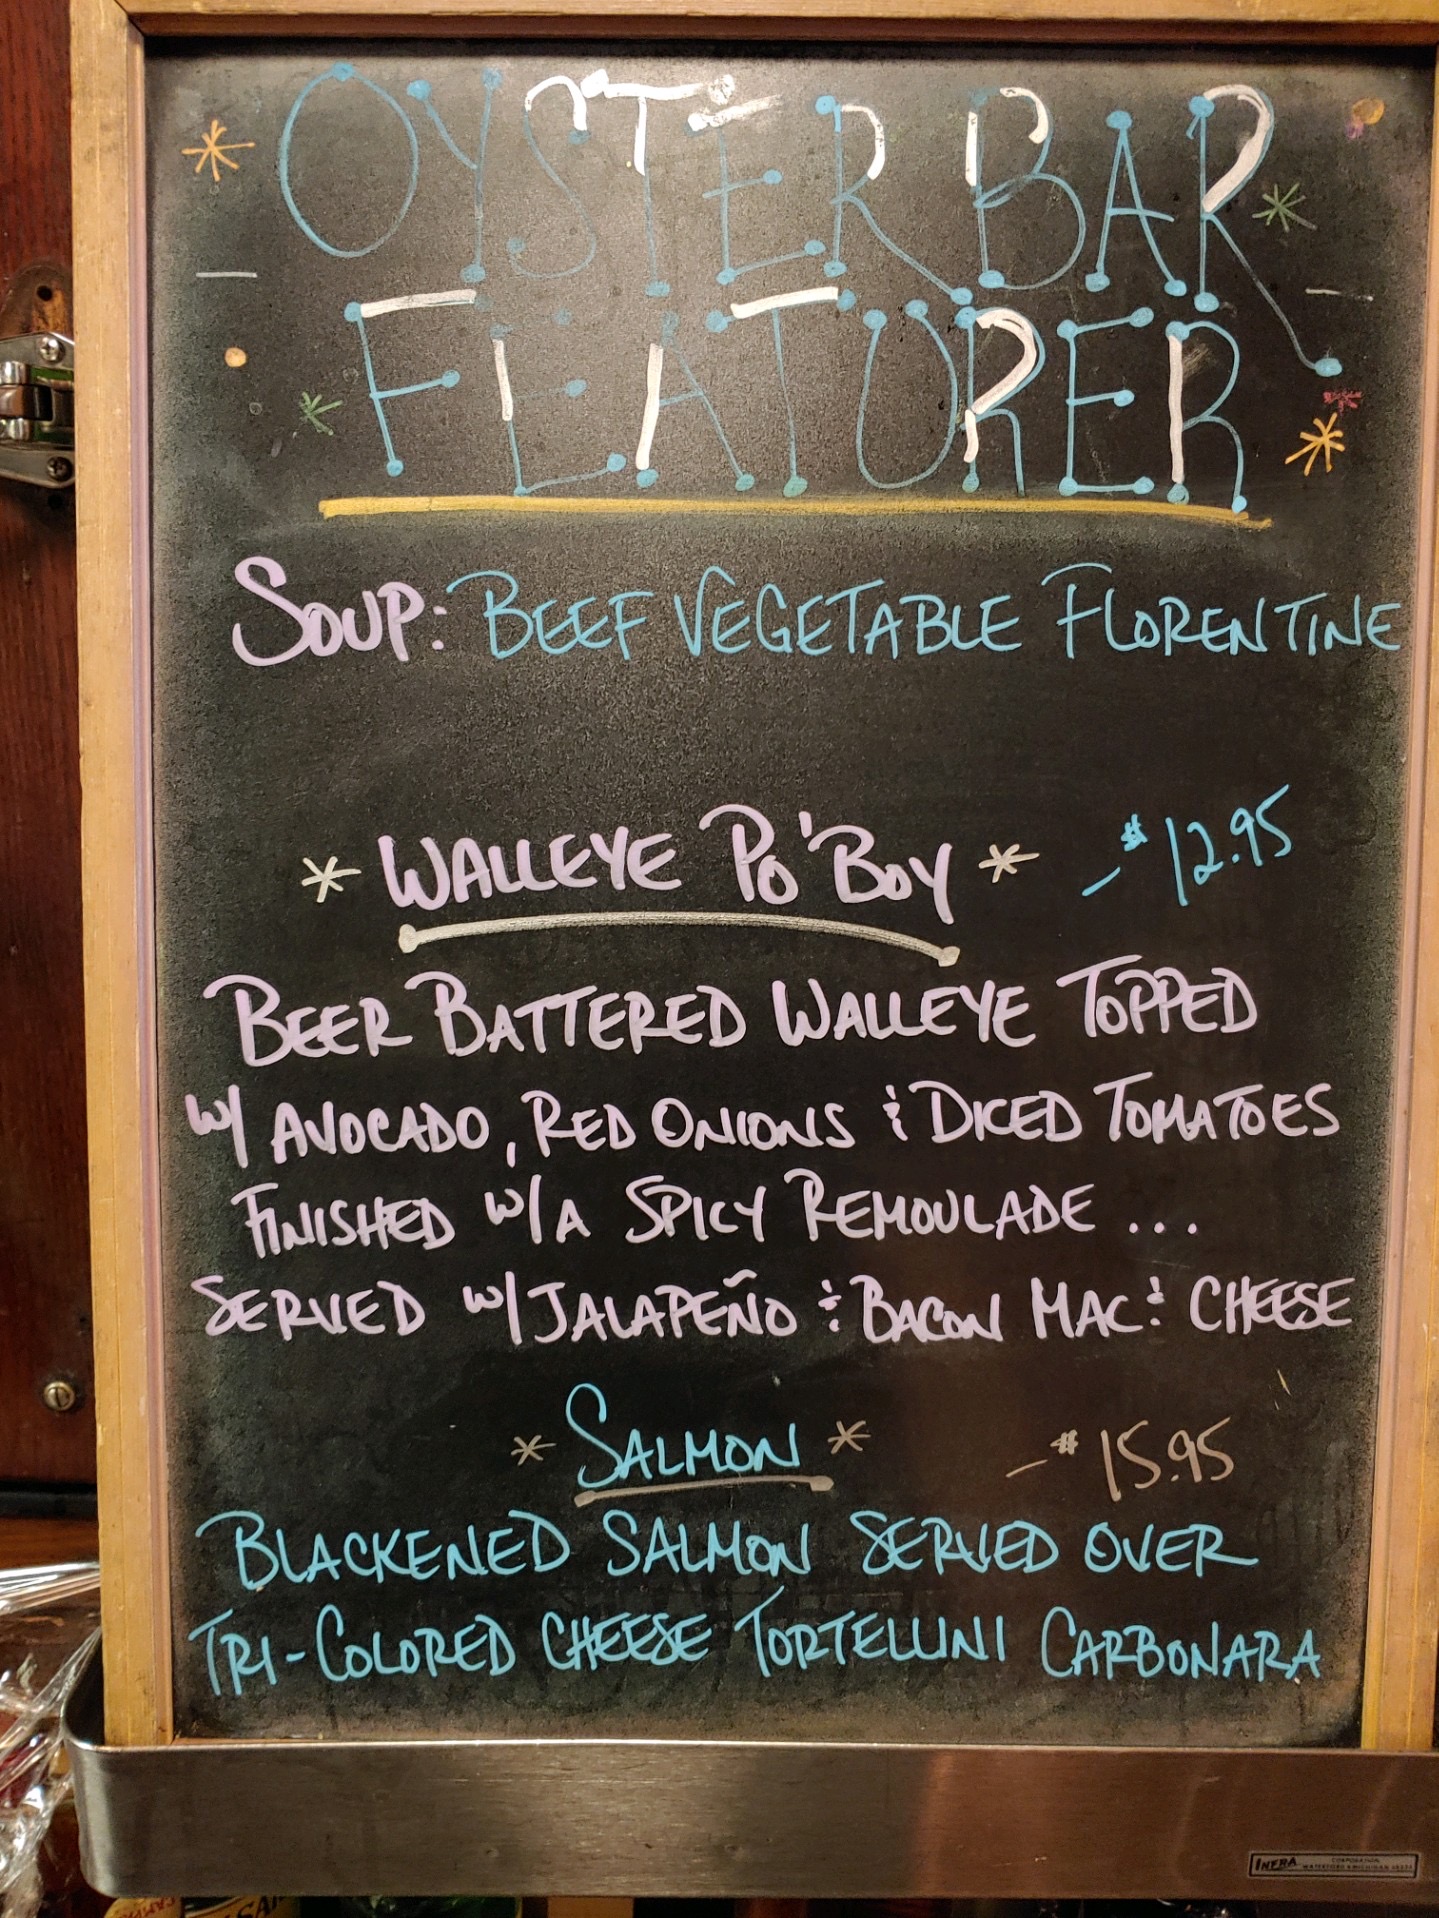 OYSTER BAR
FEATURER
SOUP: BEEF VEGETABLE FLORENTINE
* WALLEYE PO'BOY * - $12.95
BEER BATTERED WALLEYE TOPPED
W/ AVOCADO, RED ONIONS & DICED TOMATOES
FINISHED W/ A SPICY REMOULADE ...
SERVED W/ JALAPEÑO & BACON MAC & CHEESE
* SALMON * - $15.95
BLACKENED SALMON SERVED OVER
TRI-COLORED CHEESE TORTELLINI CARBONARA
INFRA CORPORATION